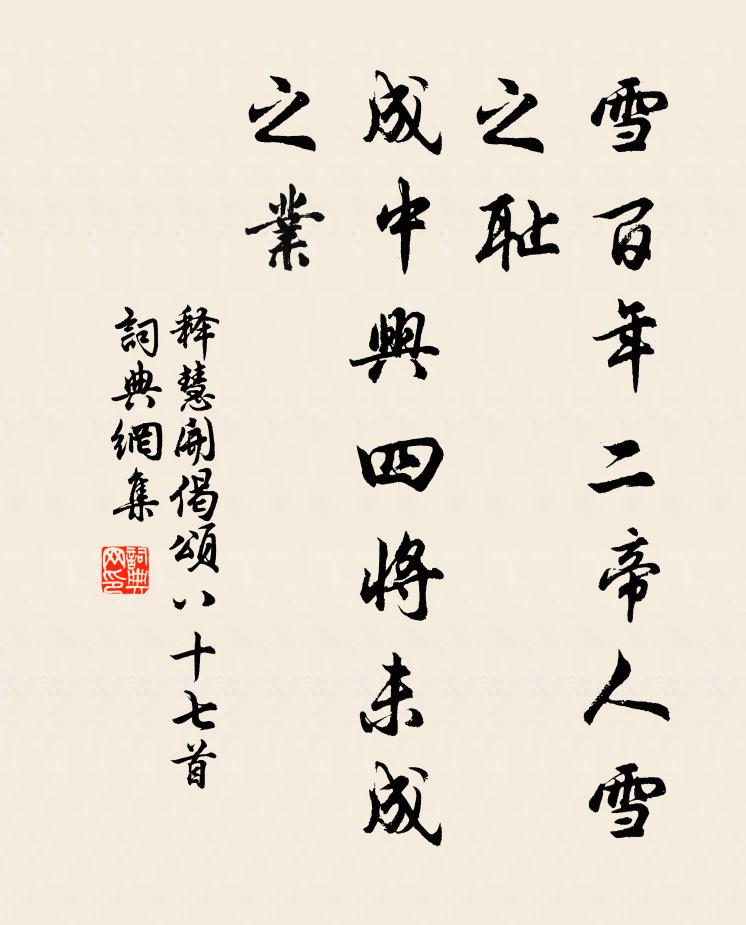 雪百年二帝人雪
之耻
成中興四將未成
之業
释慧開偈頌八十七首
詞典網集
詞典
网印